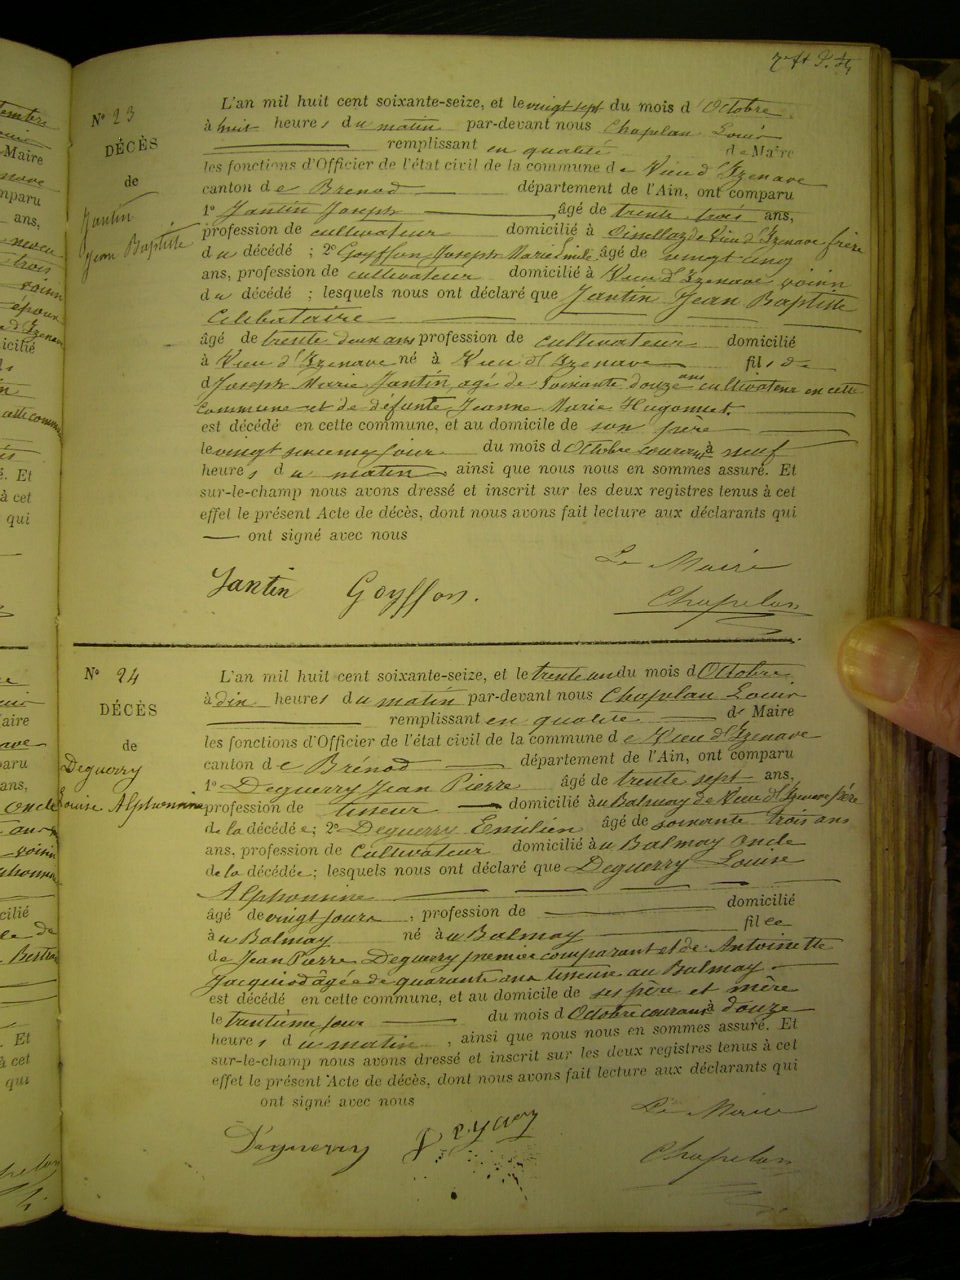 N° 23
DÉCÈS
de
Jantin
Jean Baptiste
L'an mil huit cent soixante-seize, et le vingt sept du mois d'Octobre
à huit heures du matin par-devant nous Chapelan Louis
remplissant en qualité de Maire
les fonctions d'Officier de l'état civil de la commune de Vieu d'Izenave
canton de Brenod département de l'Ain, ont comparu
1° Jantin Joseph âgé de trente trois ans,
profession de cultivateur domicilié à Oisellaz de Vieu d'Izenave frère
du décédé ; 2° Goyffon Joseph Marie Emile âgé de vingt cinq
ans, profession de cultivateur domicilié à Vieu d'Izenave voisin
du décédé ; lesquels nous ont déclaré que Jantin Jean Baptiste
Célibataire
âgé de trente deux ans profession de cultivateur domicilié
à Vieu d'Izenave né à Vieu d'Izenave fils de
d Joseph Marie Jantin, agé de Soixante douze ans cultivateur en cette
commune et de défunte Jeanne Marie Hugonnet.
est décédé en cette commune, et au domicile de son père
le vingt sixième jour du mois d'Octobre courant à neuf
heures du matin ainsi que nous nous en sommes assuré. Et
sur-le-champ nous avons dressé et inscrit sur les deux registres tenus à cet
effet le présent Acte de décès, dont nous avons fait lecture aux déclarants qui
ont signé avec nous
Le Maire
Jantin Goyffon. Chapelan
N° 24
DÉCÈS
de
Deguerry
Louise Alphonsine
L'an mil huit cent soixante-seize, et le trente un du mois d'Octobre
à dix heures du matin par-devant nous Chapelan Louis
remplissant en qualité de Maire
les fonctions d'Officier de l'état civil de la commune de Vieu d'Izenave
canton de Brénod département de l'Ain, ont comparu
1° Deguerry Jean Pierre âgé de trente sept ans,
profession de tisseur domicilié au Balmay de Vieu d'Izenave père
de la décédée ; 2° Deguerry Emilien âgé de soixante trois ans
ans, profession de Cultivateur domicilié au Balmay oncle
de la décédée ; lesquels nous ont déclaré que Deguerry Louise
Alphonsine
âgé de vingt jours, profession de domicilié
à u Balmay né à u Balmay fille
de Jean Pierre Deguerry premier comparant et de Antoinette
Jacquiod âgée de quarante ans tisseuse au Balmay.
est décédé en cette commune, et au domicile de ses père et mère
le trentième jour du mois d'Octobre courant à douze
heures du matin, ainsi que nous nous en sommes assuré. Et
sur-le-champ nous avons dressé et inscrit sur les deux registres tenus à cet
effet le présent Acte de décès, dont nous avons fait lecture aux déclarants qui
ont signé avec nous
Le Maire
Deguerry Chapelan